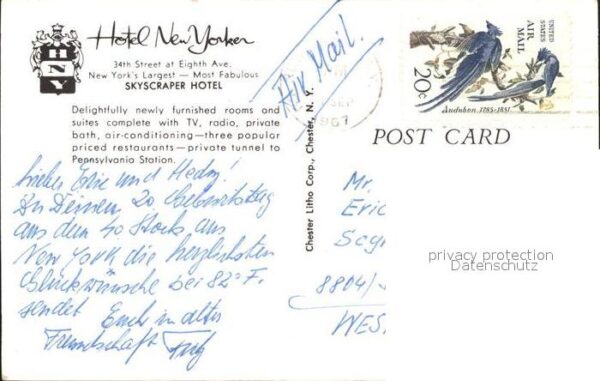 HNY
Hotel New Yorker
34th Street at Eighth Ave.
New York's Largest — Most Fabulous
SKYSCRAPER HOTEL
Delightfully newly furnished rooms and
suites complete with TV, radio, private
bath, air-conditioning—three popular
priced restaurants—private tunnel to
Pennsylvania Station.
Lieber Eric und Hedy!
Zu Deinem 20 Geburtstag
aus dem 40 Stock aus
New York die herzlichsten
Glückwünsche bei 82° F.
sendet Euch in alter
Freundschaft
Chester Litho Corp., Chester, N. Y.
Air Mail.
SEP
1967
UNITED STATES
AIR MAIL
20c
Audubon, 1785-1851
POST CARD
Mr.
Eric
8804/
WES
privacy protection
Datenschutz